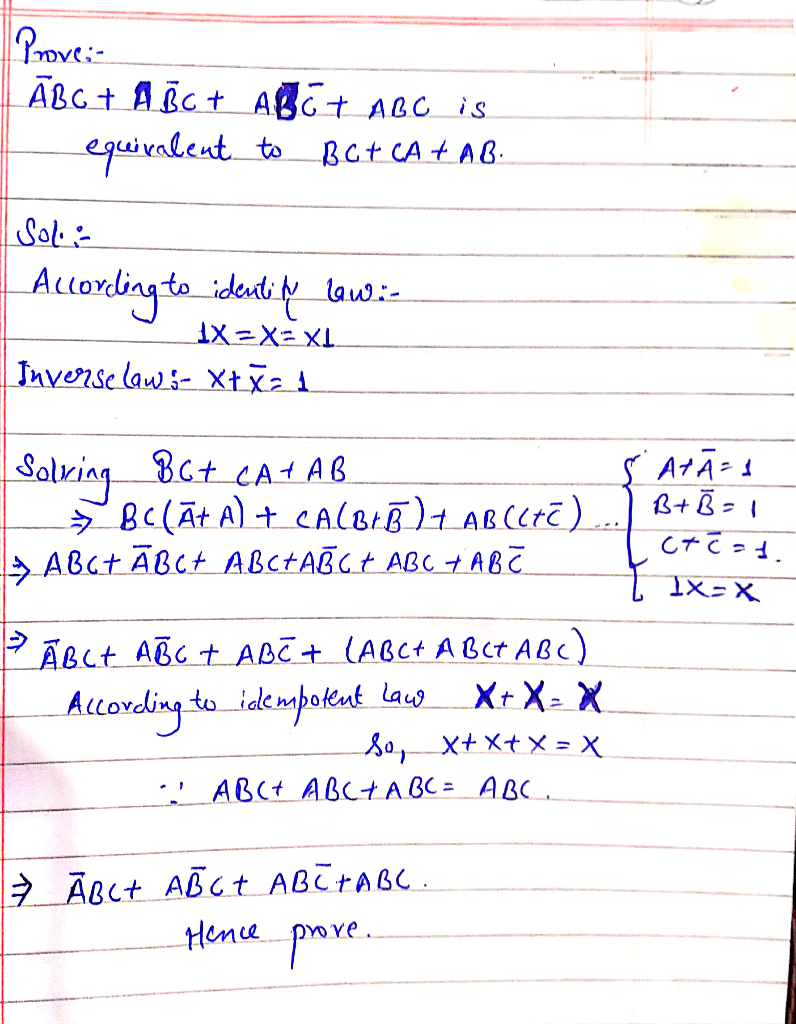 Prove:-
ĀBC + AB̄C + ABC̄ + ABC is
equivalent to BC + CA + AB.
Sol. :-
According to identity law:-
1X = X = X1
Inverse law :- X + X̄ = 1
Solving BC + CA + AB
⇒ BC(Ā + A) + CA(B + B̄) + AB(C + C̄) ... { A + Ā = 1
B + B̄ = 1
C + C̄ = 1.
1X = X
⇒ ABC + ĀBC + ABC + AB̄C + ABC + ABC̄
⇒ ĀBC + AB̄C + ABC̄ + (ABC + ABC + ABC)
According to idempotent Law X + X = X
So, X + X + X = X
∵ ABC + ABC + ABC = ABC.
⇒ ĀBC + AB̄C + ABC̄ + ABC.
Hence prove.